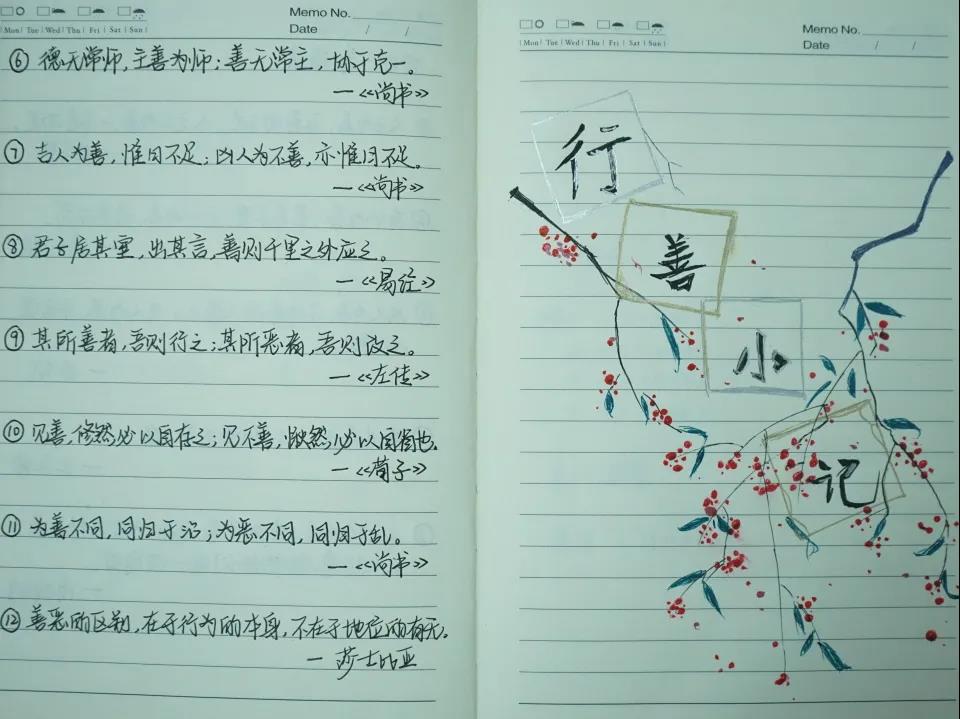 Memo No.
Mon Tue Wed Thu Fri Sat Sun
Date / /
⑥ 德无常师,主善为师;善无常主,协于克一。
—《尚书》
⑦ 吉人为善,惟日不足;凶人为不善,亦惟日不足。
—《尚书》
⑧ 君子居其室,出其言,善则千里之外应之。
—《易经》
⑨ 其所善者,吾则行之;其所恶者,吾则改之。
—《左传》
⑩ 见善,修然必以自存之;见不善,愀然,必以自省也。
—《荀子》
⑪ 为善不同,同归于治;为恶不同,同归于乱。
—《尚书》
⑫ 善恶的区别,在于行为的本身,不在于地位的有无。
— 莎士比亚
Memo No.
Mon Tue Wed Thu Fri Sat Sun
Date / /
行
善
小
记